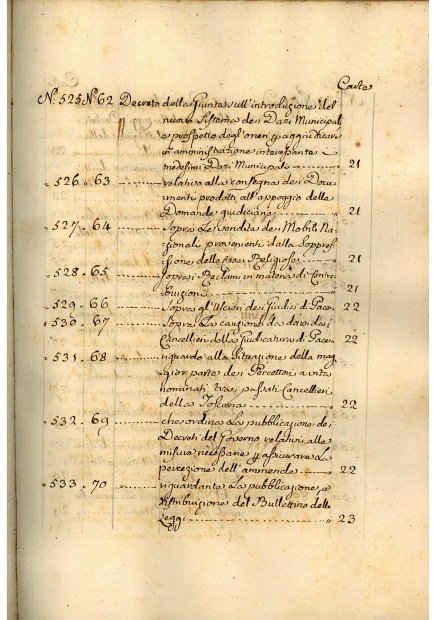 Carte
N.° 525 N.° 62 Decreto della Giunta sull'introduzione del
nuovo Sistema dei Dazi Municipali
e prospetto degl'oneri p aggiudicare
amministrazione interessante
medesimi Dazi Municipali 21
" 526 " 63 relativo alla consegna dei Docu-
menti prodotti all'appoggio della
Domande giudiciarie " 21
" 527 " 64 Sopra le vendite dei Mobili Na-
zionali provenienti dalla Soppres-
sione delle Case Religiose " 21
" 528 " 65 Sopra i Reclami in materia di Contri-
buzioni " 21
" 529 " 66 Sopra gl'Uscieri dei Giudici di Pace " 22
" 530 " 67 Sopra la cauzione da darsi dei
Cancellieri della Giudicatura di Pace " 22
" 531 " 68 riguardo alla Situazione della mag-
gior parte dei Percettori a vita
nominati tra i passati Cancellieri
della Toscana " 22
" 532 " 69 che ordina la pubblicazione dei
Decreti del Governo relativi alle
misure necessarie p assicurare la
percezione dell'ammende " 22
" 533 " 70 riguardante la pubblicazione e
distribuzione del Bullettino delle
Leggi " 23